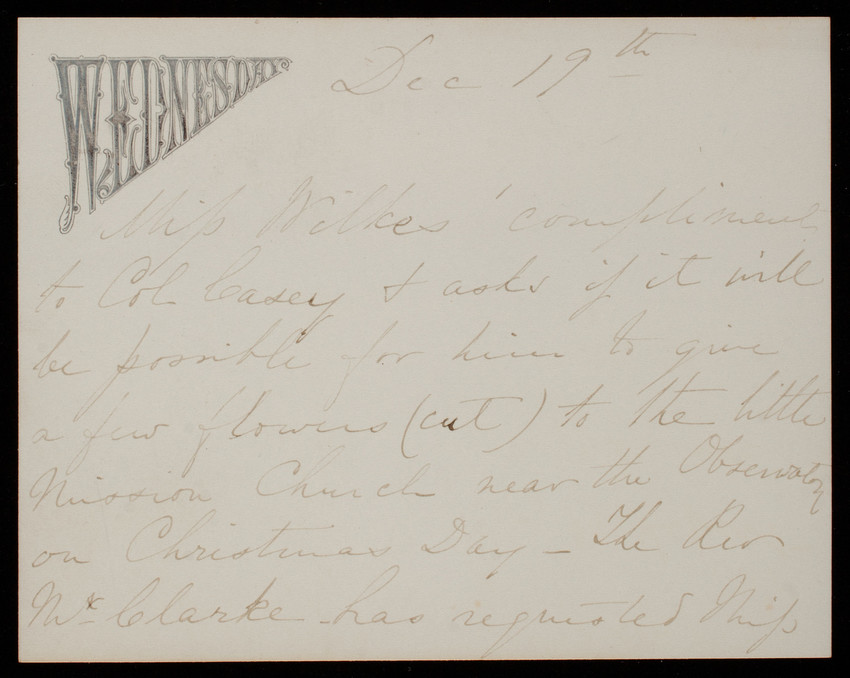 WEDNESDAY
Dec 19th
Miss Wilkes' compliments
to Col Casey & asks if it will
be possible for him to give
a few flowers (cut) to the little
Mission Church near the Observatory
on Christmas Day - The Rev
Mr Clarke has requested Miss